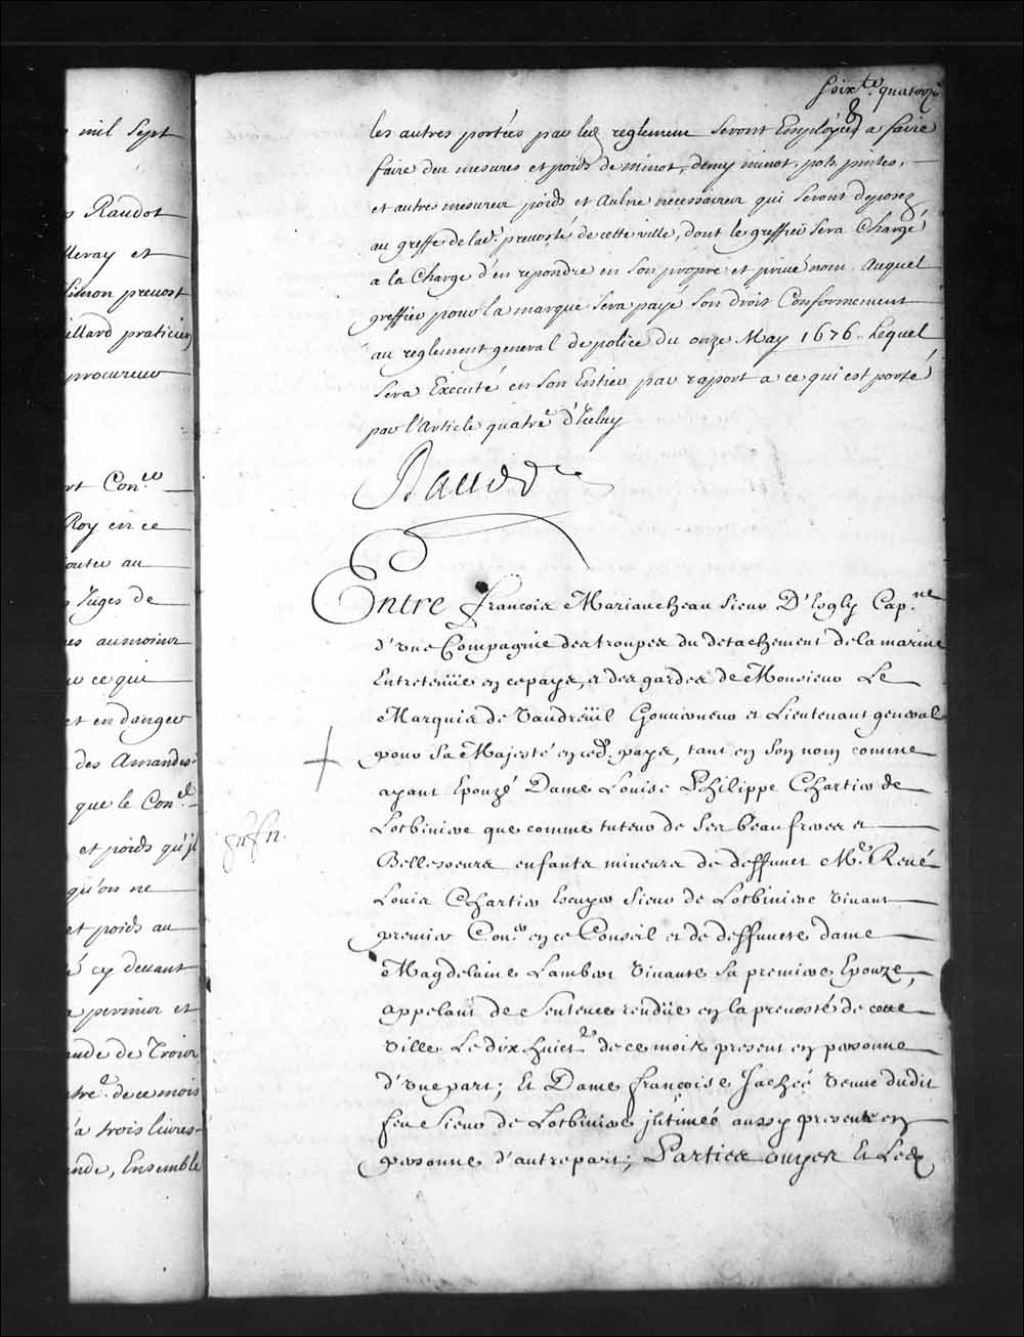 mil Sept
Raudot
lleray et
prevost
illard praticien
procureur
rt Con.er
Roy en ce
outer au
Juges de
es aumoins
ce qui
et en danger
des Amandes
que le Con.el
et poids qu'jl
qu'on ne
et poids au
é cy devant
a perimer et
ande de Trois
tre.e de ce mois
a trois livres
nde, Ensemble
soix.te quatorze
les autres portées par led. reglement Seront Employées a faire
faire des mesures et poids de minot, demy minot, pots, pintes,
et autres mesures poids et Aulne necessaires qui Seront deposez
au greffe de lad. prevosté de cette ville, dont le greffier Sera Chargé
a la Charge d'en repondre en Son propre et privé nom. Auquel
greffier pour la marque Sera payé Son droit Conformement
au reglement general de police du onze May 1676. Lequel
Sera Executé en Son Entier par raport a ce qui est porté
par l'Article quatre d'Iceluy
Raudot
Entre francois Mariaucheau Sieur D'Esgly Cap.ne
d'vne Compagnie des troupes du detachement de la marine
Entretenüe en ce pays, et des gardes de Monsieur Le
Marquis de Vaudreüil Gouverneur et Lieutenant general
pour Sa Majesté en ced. pays, tant en Son nom comme
ayant Epouzé Dame Louise Philippe Chartier de
Lotbiniere que comme tuteur de Ses beaufreres et
Bellesoeurs enfants mineurs de deffunct M.e René
Louis Chartier Escuyer Sieur de Lotbiniere vivant
premier Con.er en ce Conseil et de deffuncte dame
Magdelaine Lambert vivante Sa premiere Epouze,
appelant de Sentence rendüe en la prevosté de cette
Ville Le dix huict.e de ce mois present en personne
d'vne part; Et Dame françoise Jachée veuve dudit
feu Sieur de Lotbiniere jntimée aussy presente en
personne d'autre part; Parties ouyes Et Led.